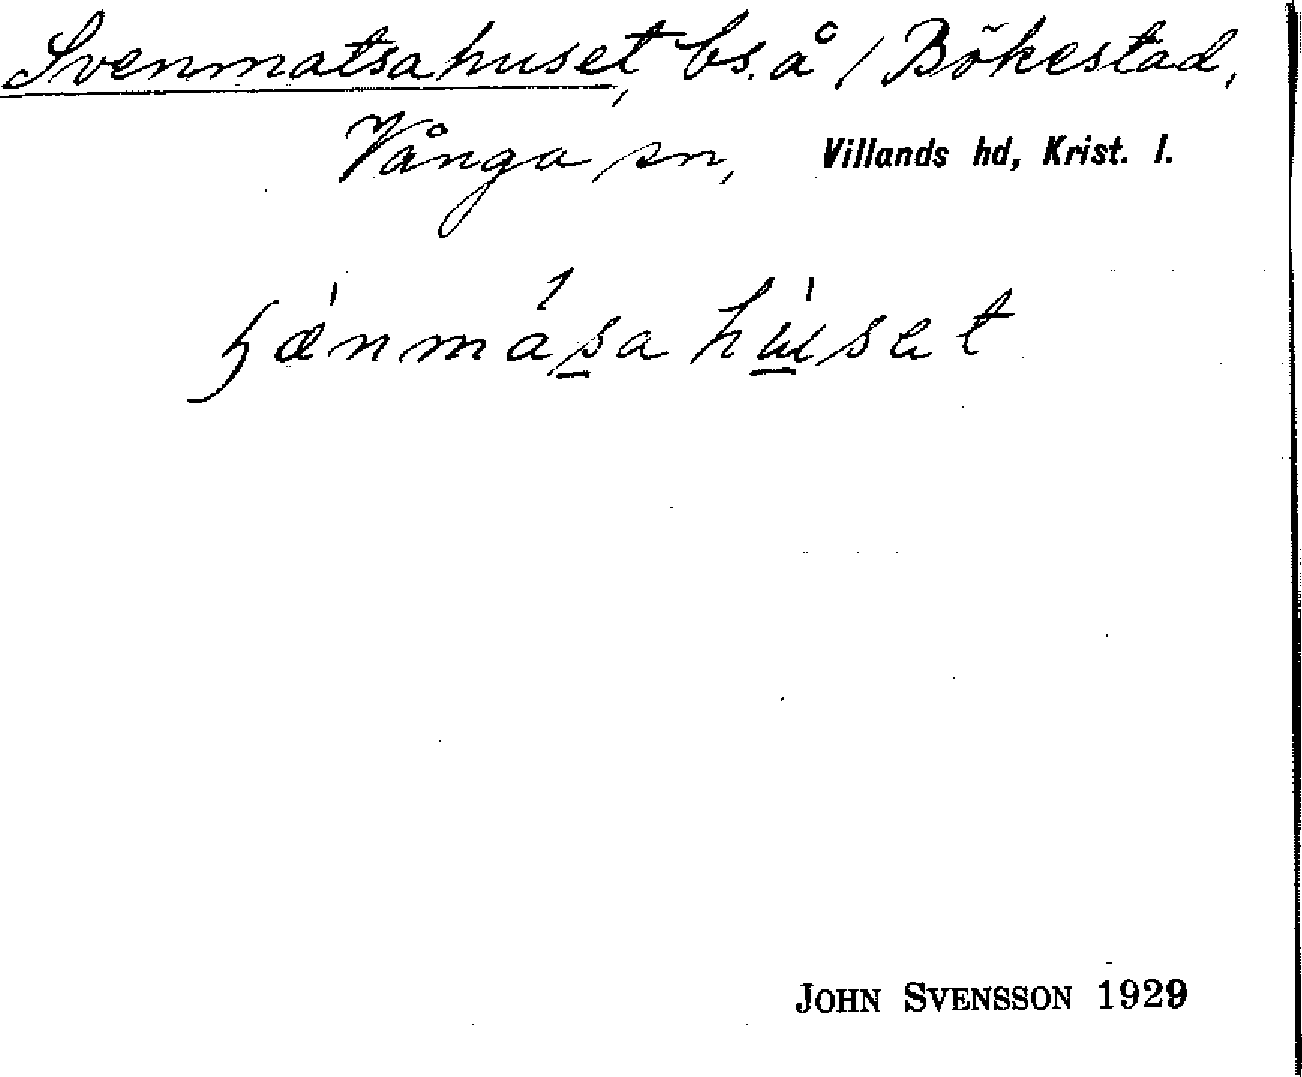 Svenmatsahuset, bs. å / Bökestad,
Vånga sn, Villands hd, Krist. l.
JOHN SVENSSON 1929